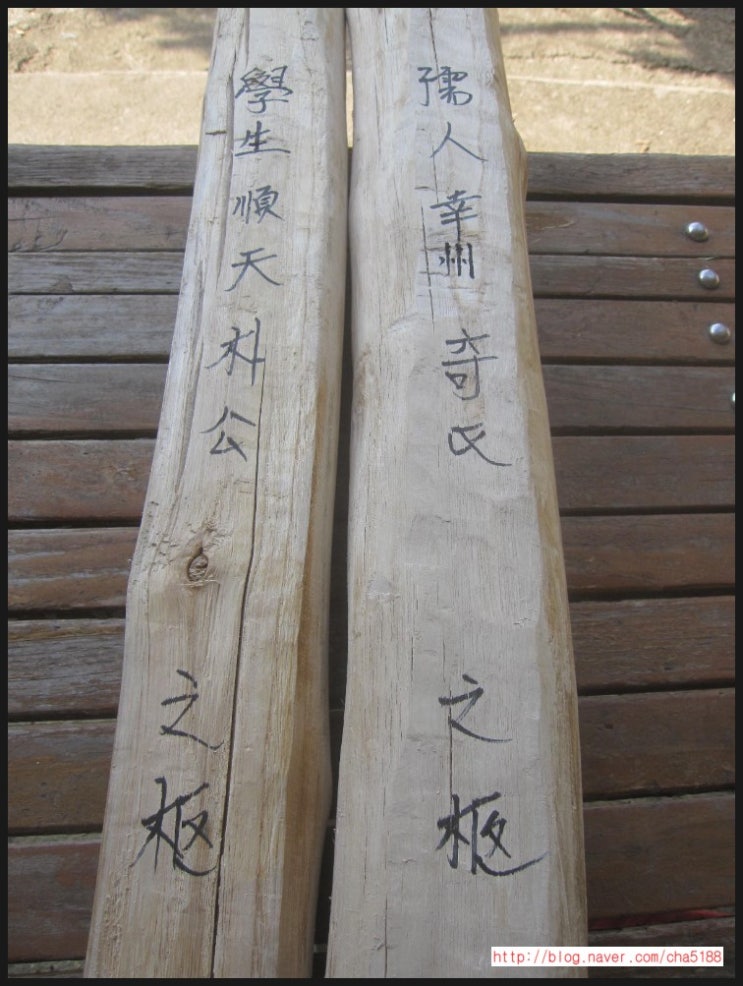 孺人幸州奇氏之柩
學生順天朴公之柩
http://blog.naver.com/cha5188